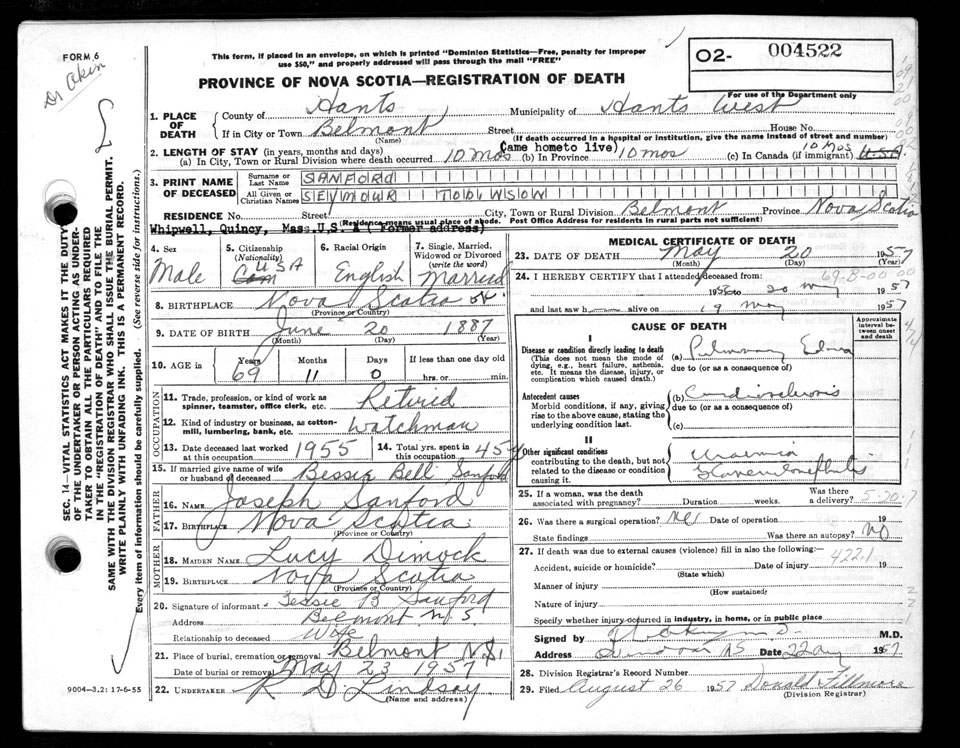 FORM 6
Dr Akin
This form, if placed in an envelope, on which is printed "Dominion Statistics—Free, penalty for improper
use $50," and properly addressed will pass through the mail "FREE"
02- 004522
For use of the Department only
PROVINCE OF NOVA SCOTIA—REGISTRATION OF DEATH
1. PLACE OF DEATH County of Hants Municipality of Hants West
If in City or Town Belmont Street House No.
(Name) (If death occurred in a hospital or institution, give the name instead of street and number)
2. LENGTH OF STAY (in years, months and days) (Came home to live) 10 Mos
(a) In City, Town or Rural Division where death occurred 10 Mos (b) In Province 10 mos (c) In Canada (if immigrant) U.S.A.
3. PRINT NAME OF DECEASED Surname or Last Name SANFORD
All Given or Christian Names SEYMOUR
RESIDENCE No. Street City, Town or Rural Division Belmont Province Nova Scotia
(Residence means usual place of abode. Post Office Address for residents in rural parts not sufficient)
Whipwell, Quincy, Mass. U.S. Former address)
4. Sex Male
5. Citizenship (Nationality) USA
6. Racial Origin English
7. Single, Married, Widowed or Divorced (write the word) Married
8. BIRTHPLACE Nova Scotia
(Province or Country)
9. DATE OF BIRTH June 20 1887
(Month) (Day) (Year)
10. AGE in Years 69 Months 11 Days 0 If less than one day old hrs. or min.
OCCUPATION
11. Trade, profession, or kind of work as spinner, teamster, office clerk, etc. Retired
12. Kind of industry or business, as cotton-mill, lumbering, bank, etc. Watchman
13. Date deceased last worked at this occupation 1955 14. Total yrs. spent in this occupation 45
15. If married give name of wife or husband of deceased Bessie Bell Sanford
FATHER
16. NAME Joseph Sanford
17. BIRTHPLACE Nova Scotia
(Province or Country)
MOTHER
18. MAIDEN NAME Lucy Dimock
19. BIRTHPLACE Nova Scotia
(Province or Country)
20. Signature of informant Bessie B Sanford
Address Belmont N.S
Relationship to deceased Wife
21. Place of burial, cremation or removal Belmont N.S.
Date of burial or removal May 23 1957
22. UNDERTAKER R D Lindsay
(Name and address)
9004—3.2: 17-6-55
MEDICAL CERTIFICATE OF DEATH
23. DATE OF DEATH May 20 1957
(Month) (Day) (Year)
24. I HEREBY CERTIFY that I attended deceased from 69-B-00 00
1956 to 20 May 1957
and last saw h alive on 19 May 1957
CAUSE OF DEATH
Approximate interval between onset and death
I
Disease or condition directly leading to death (a) Pulmonary Edema
(This does not mean the mode of dying, e.g., heart failure, asthenia, etc. It means the disease, injury, or complication which caused death.)
due to (or as a consequence of)
Antecedent causes (b)
Morbid conditions, if any, giving rise to the above cause, stating the underlying condition last.
due to (or as a consequence of)
(c)
II
Other significant conditions Uraemia
contributing to the death, but not related to the disease or condition causing it.
25. If a woman, was the death associated with pregnancy? Duration weeks. Was there a delivery? 5-20-7
26. Was there a surgical operation? No Date of operation 19
State findings Was there an autopsy? No
27. If death was due to external causes (violence) fill in also the following:—
Accident, suicide or homicide? Date of injury 19 422.1
(State which)
Manner of injury
(How sustained)
Nature of injury
Specify whether injury occurred in industry, in home, or in public place
Signed by M.D.
Address Windsor NS Date 22 Aug 1957
28. Division Registrar's Record Number
29. Filed August 26 1957 Donald Fillmore
(Division Registrar)
SEC. 14—VITAL STATISTICS ACT MAKES IT THE DUTY
OF THE UNDERTAKER OR PERSON ACTING AS UNDER-
TAKER TO OBTAIN ALL THE PARTICULARS REQUIRED
IN THE "REGISTRATION OF DEATH" AND TO FILE THE
SAME WITH THE DIVISION REGISTRAR WHO SHALL ISSUE THE BURIAL PERMIT.
WRITE PLAINLY WITH UNFADING INK. THIS IS A PERMANENT RECORD.
Every item of information should be carefully supplied. (See reverse side for instructions.)